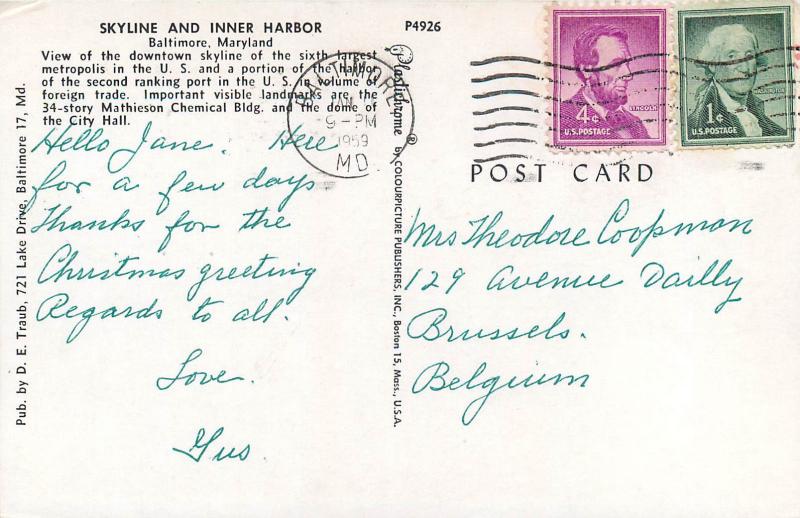 SKYLINE AND INNER HARBOR
Baltimore, Maryland
View of the downtown skyline of the sixth largest
metropolis in the U. S. and a portion of the harbor
of the second ranking port in the U. S. in volume of
foreign trade. Important visible landmarks are the
34-story Mathieson Chemical Bldg. and the dome of
the City Hall.
P4926
Hello Jane. Here
for a few days
Thanks for the
Christmas greeting
Regards to all.
Love.
Gus
Pub. by D. E. Traub, 721 Lake Drive, Baltimore 17, Md.
Plastichrome ® by COLOURPICTURE PUBLISHERS, INC., Boston 15, Mass., U.S.A.
BALTIMORE
9-PM
1959
MD.
4¢
LINCOLN
U.S. POSTAGE
WASHINGTON
1¢
U.S. POSTAGE
POST CARD
Mrs Theodore Coopman
129 Avenue Dailly
Brussels.
Belgium